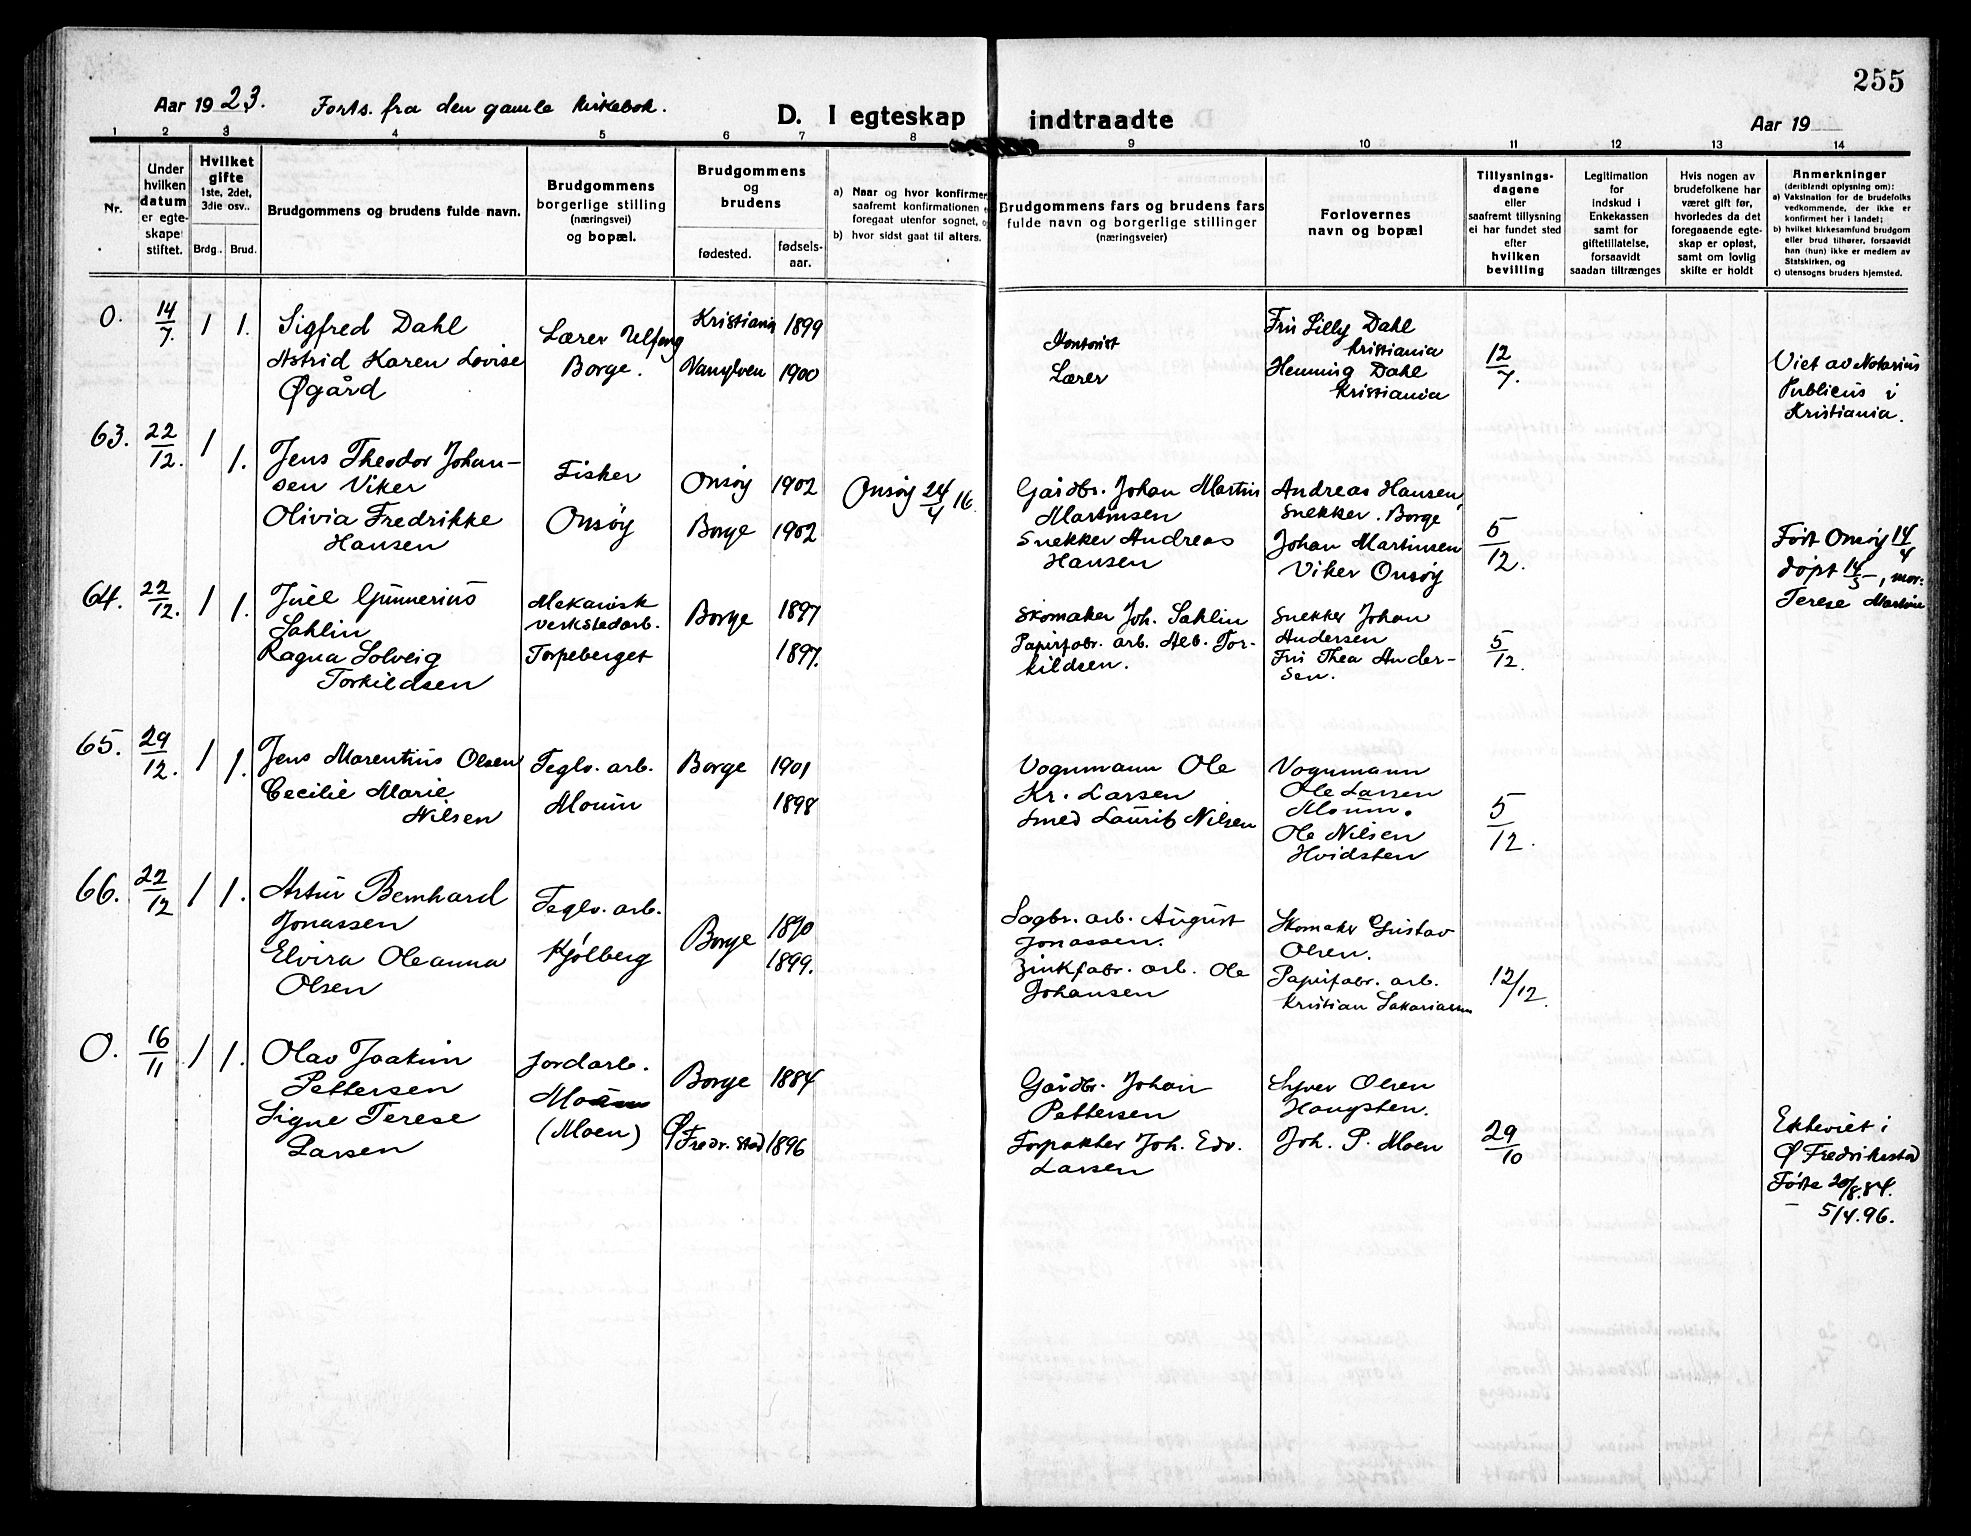 255
Aar 1923. Forts. fra den gamle kirkebok.
D. I egteskap indtraadte
Aar 19
1 2 3 4 5 6 7 8 9 10 11 12 13 14
Nr.
Under hvilken datum er egteskapet stiftet.
Hvilket gifte 1ste, 2det, 3die osv..
Brdg. Brud.
Brudgommens og brudens fulde navn.
Brudgommens borgerlige stilling (næringsvei) og bopæl.
Brudgommens og brudens
fødested. fødselsaar.
a) Naar og hvor konfirmer
saafremt konfirmationen
foregaat utenfor sognet, o
b) hvor sidst gaat til alters.
Brudgommens fars og brudens fars
fulde navn og borgerlige stillinger
(næringsveier)
Forlovernes
navn og bopæl
Tillysningsdagene
eller
saafremt tillysning
ei har fundet sted
efter
hvilken
bevilling
Legitimation
for
indskud i
Enkekassen
samt for
giftetillatelse,
forsaavidt
saadan tiltrænges
Hvis nogen av
brudefolkene har
været gift før,
hvorledes da det
foregaaende egteskap er opløst,
samt om lovlig
skifte er holdt
Anmerkninger
(deriblandt oplysning om):
a) Vaksination for de brudefolks
vedkommende, der ikke er
konfirmert her i landet;
b) hvilket kirkesamfund brudgom
eller brud tilhører, forsaavidt
han (hun) ikke er medlem av
Statskirken, og
c) utensogns bruders hjemsted.
0. 14/7. 1 1. Sigfred Dahl
Astrid Karen Lovise
Øgård
Lærer
Borge.
Kristiania 1899
Vanylven 1900
Kontorist
Lærer
Frk Lilly Dahl
Kristiania
Henning Dahl
Kristiania
12/7.
Viet av Notarius
Publicus i
Kristiania.
63. 22/12. 1 1. Jens Theodor Johan-
sen Viker
Olivia Fredrikke
Hansen
Fisker
Onsøy
Onsøy 1902
Borge 1902
Onsøy 24/4 16.
Gårdbr. Johan Martin
Martinsen
Snekker Andreas
Hansen
Andreas Hansen,
Snekker. Borge
Johan Martinsen
Viker Onsøy
5/12.
Født Onsøy 14/4
døpt 14/5, mor:
Terese Martine
64. 22/12. 1 1. Juel Gunnerius
Sahlin
Ragna Solveig
Torkildsen
Mekanisk
verkstedarb.
Torpeberget
Borge 1897
1897.
Skomaker Joh. Sahlin
Papirfabr. arb. Alb. Tor-
kildsen.
Snekker Johan
Andersen
Frk Thea Ander-
sen.
5/12.
65. 29/12. 1 1. Jens Marentius Olsen
Cecilie Marie
Nilsen
Teglv. arb.
Moum
Borge 1901
1898
Vognmann Ole
Kr. Larsen
Smed Laurits Nilsen
Vognmann
Ole Larsen
Moum.
Ole Nilsen
Hvidsten
5/12.
66. 22/12 1 1. Artur Bernhard
Jonassen
Elvira Oleanna
Olsen
Teglv. arb.
Kjølberg
Borge 1890
1899.
Sagbr. arb. August
Jonassen.
Zinkfabr. arb. Ole
Johansen
Skomaker Gustav
Olsen.
Papirfabr. arb.
Kristian Sakariassen
12/12.
0. 16/11 1 1. Olav Joakim
Pettersen
Signe Terese
Larsen
Jordarb.
Moum
(Moen)
Borge 1884
Ø Fredr.stad 1896
Gårdbr. Johan
Pettersen
Forpakter Joh. Edv.
Larsen
Syver Olsen
Haugsten.
Joh. P. Moen
29/10
Ekteviet i
Ø Fredrikstad
Fødte 20/8.84.
– 5/4.96.